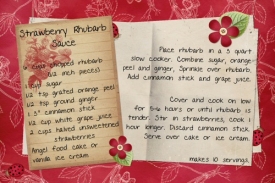 Strawberry Rhubarb
Sauce
6 cups chopped rhubarb
(1/2 inch pieces)
1 cup sugar
1/2 tsp grated orange peel
1/2 tsp ground ginger
1 3" cinnamon stick
1/2 cup white grape juice
2 cups halved unsweetened
strawberries
Angel food cake or
vanilla ice cream
Place rhubarb in a 3 quart
slow cooker. Combine sugar, orange
peel and ginger. Sprinkle over rhubarb.
Add cinnamon stick and grape juice.
Cover and cook on low
for 5-6 hours or until rhubarb is
tender. Stir in strawberries, cook 1
hour longer. Discard cinnamon stick.
Serve over cake or ice cream.
makes 10 servings.